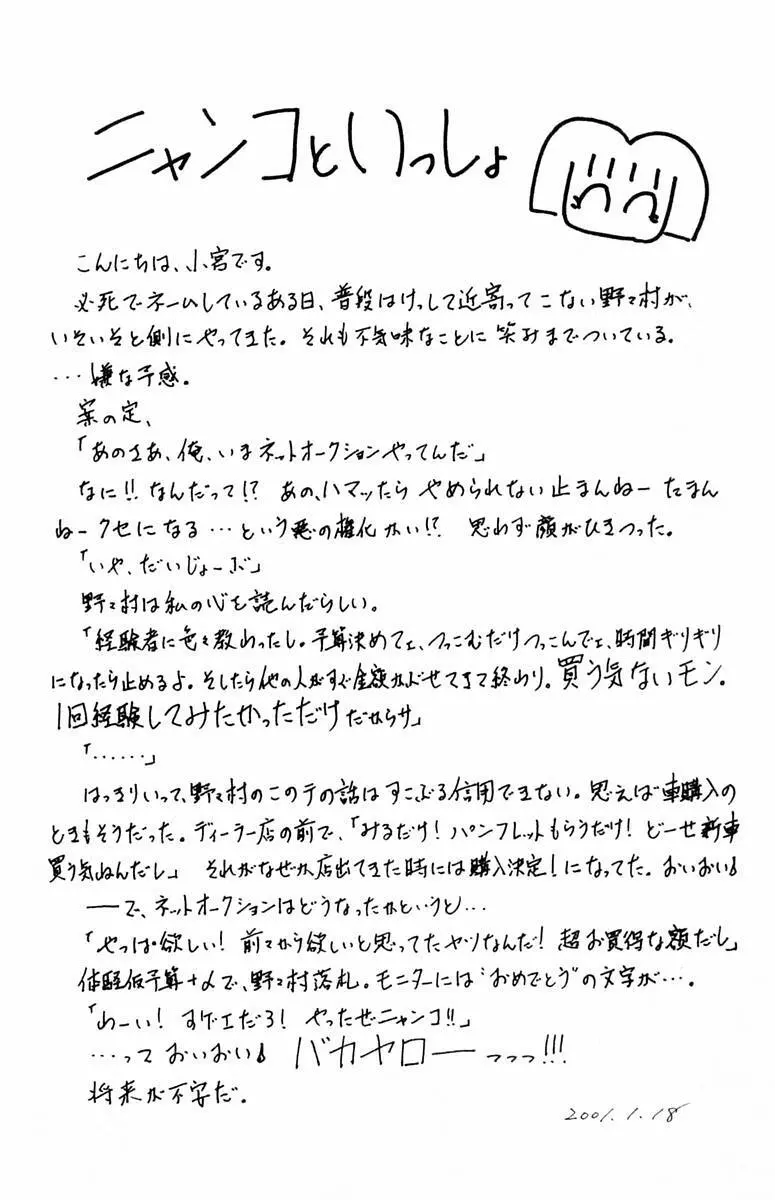 ニャンコといっしょ
こんにちは、小宮です。
必死でネームしているある日、普段はけっして近寄ってこない野々村が、
いそいそと側にやってきた。それも不気味なことに笑みまでついている。
…嫌な予感。
案の定、
「あのさあ、俺、いまネットオークションやってんだ」
なに!! なんだって!? あの、ハマッたらやめられない止まんねー たまん
ねークセになる…という悪の権化かい!? 思わず顔がひきつった。
「いや、だいじょーぶ」
野々村は私の心を読んだらしい。
「経験者に色々教わったし。予算決めてェ、つっこむだけつっこんでェ、時間ギリギリ
になったら止めるよ。そしたら他の人がすぐ金額かぶせてきて終わり。買う気ないモン。
1回経験してみたかっただけだからサ」
「……」
はっきりいって、野々村のこのテの話はすこぶる信用できない。思えば車購入の
ときもそうだった。ディーラー店の前で、「みるだけ! パンフレットもらうだけ! どーせ新車
買う気ねんだし」 それがなぜか店出てきた時には購入決定!になってた。おいおい
――で、ネットオークションはどうなったかというと…
「やっぱ欲しい! 前々から欲しいと思ってたヤツなんだ! 超お買得な額だし」
予算+αで、野々村落札。モニターには"おめでとう"の文字が…。
「わーい! すげェだろ! やったぜニャンコ!!」
…って おいおい バカヤローーっっっ!!!
将来が不安だ。
2001.1.18